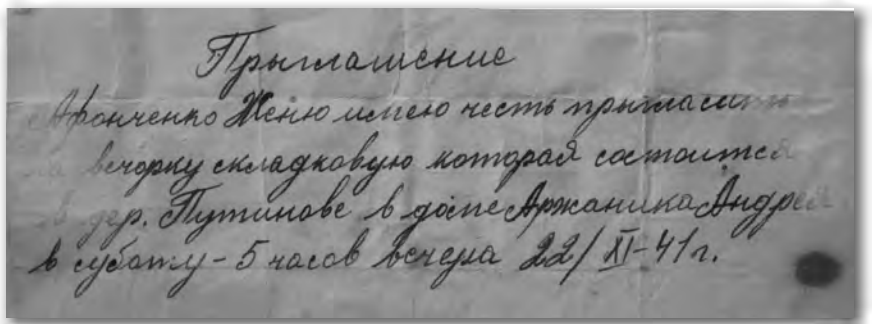 Прыглашение
Афонченко Женю имею честь прыгласить
на вечорку складковую которая состоится
в дер. Путинове в доме Аржаника Андрея
в суботу - 5 часов вечера 22/XI-41 г.